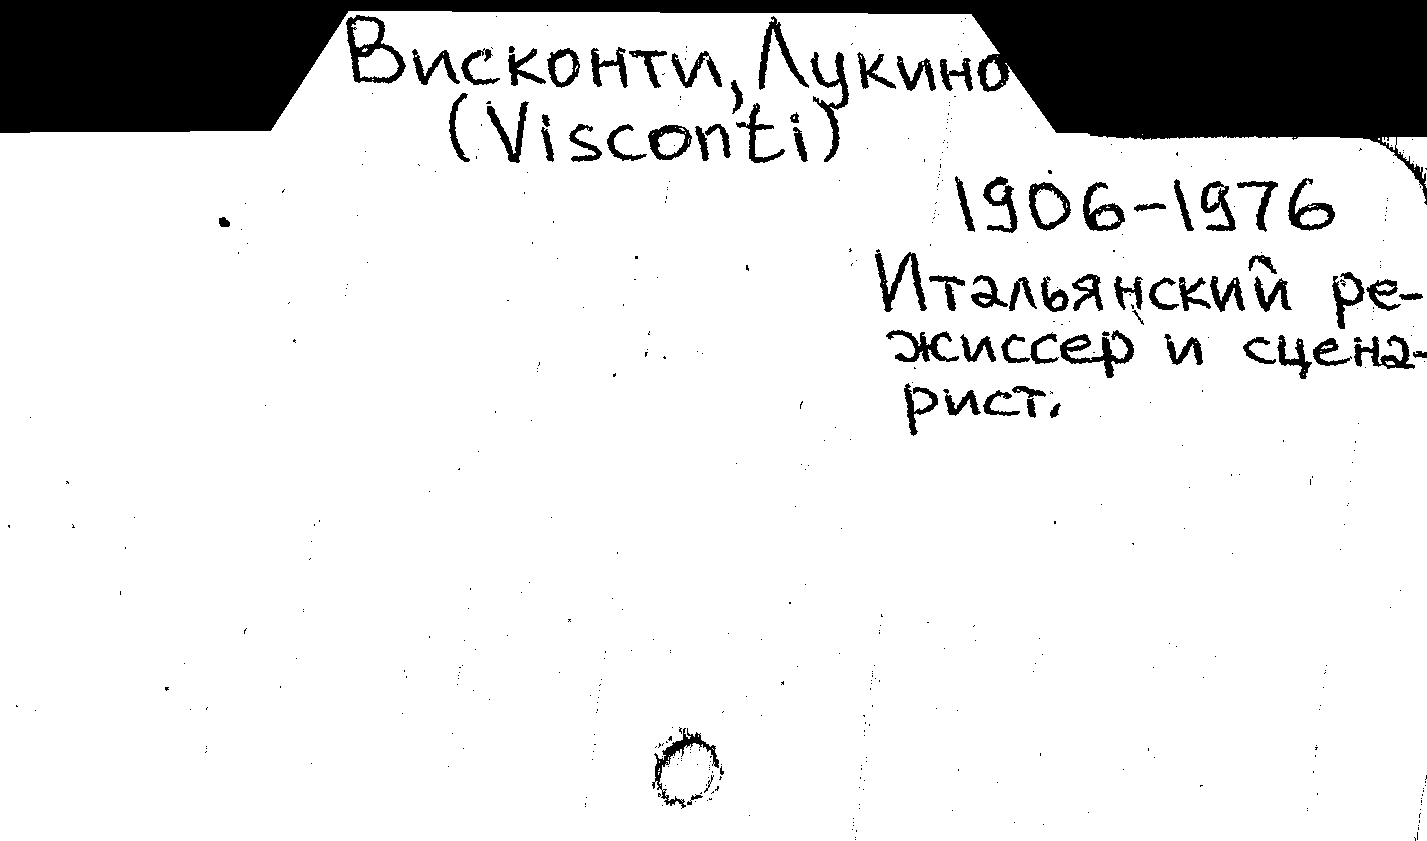 Висконти, Лукино
(Visconti)
1906-1976
Итальянский ре-
жиссер и сцена-
рист.